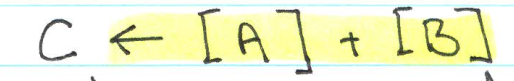 C ← [A] + [B]